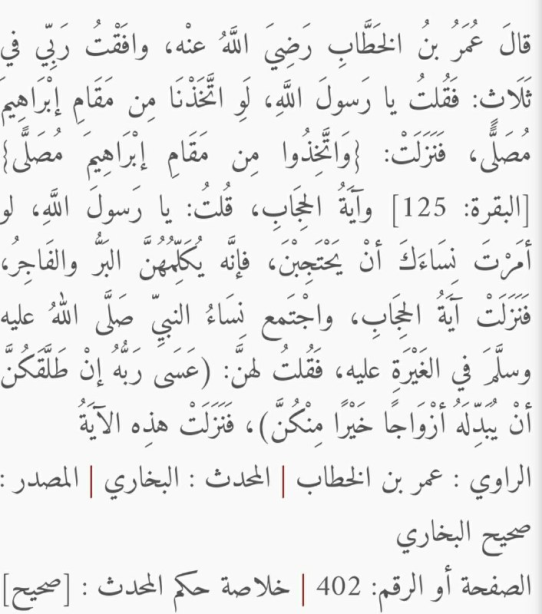 قالَ عُمَرُ بنُ الخَطَّابِ رَضِيَ اللَّهُ عنْه، وافَقْتُ رَبِّي في
ثَلَاثٍ: فَقُلتُ يا رَسولَ اللَّهِ، لَوِ اتَّخَذْنَا مِن مَقَامِ إبْرَاهِيمَ
مُصَلًّى، فَنَزَلَتْ: {وَاتَّخِذُوا مِن مَقَامِ إبْرَاهِيمَ مُصَلًّى}
[البقرة: 125] وآيَةُ الحِجَابِ، قُلتُ: يا رَسولَ اللَّهِ، لو
أمَرْتَ نِسَاءَكَ أنْ يَحْتَجِبْنَ، فإنَّه يُكَلِّمُهُنَّ البَرُّ والفَاجِرُ،
فَنَزَلَتْ آيَةُ الحِجَابِ، واجْتَمع نِسَاءُ النبيِّ صَلَّى اللهُ عليه
وسلَّمَ في الغَيْرَةِ عليه، فَقُلتُ لهنَّ: (عَسَى رَبُّهُ إنْ طَلَّقَكُنَّ
أنْ يُبَدِّلَهُ أزْوَاجًا خَيْرًا مِنْكُنَّ)، فَنَزَلَتْ هذِه الآيَةُ
الراوي : عمر بن الخطاب | المحدث : البخاري | المصدر :
صحيح البخاري
الصفحة أو الرقم: 402 | خلاصة حكم المحدث : [صحيح]